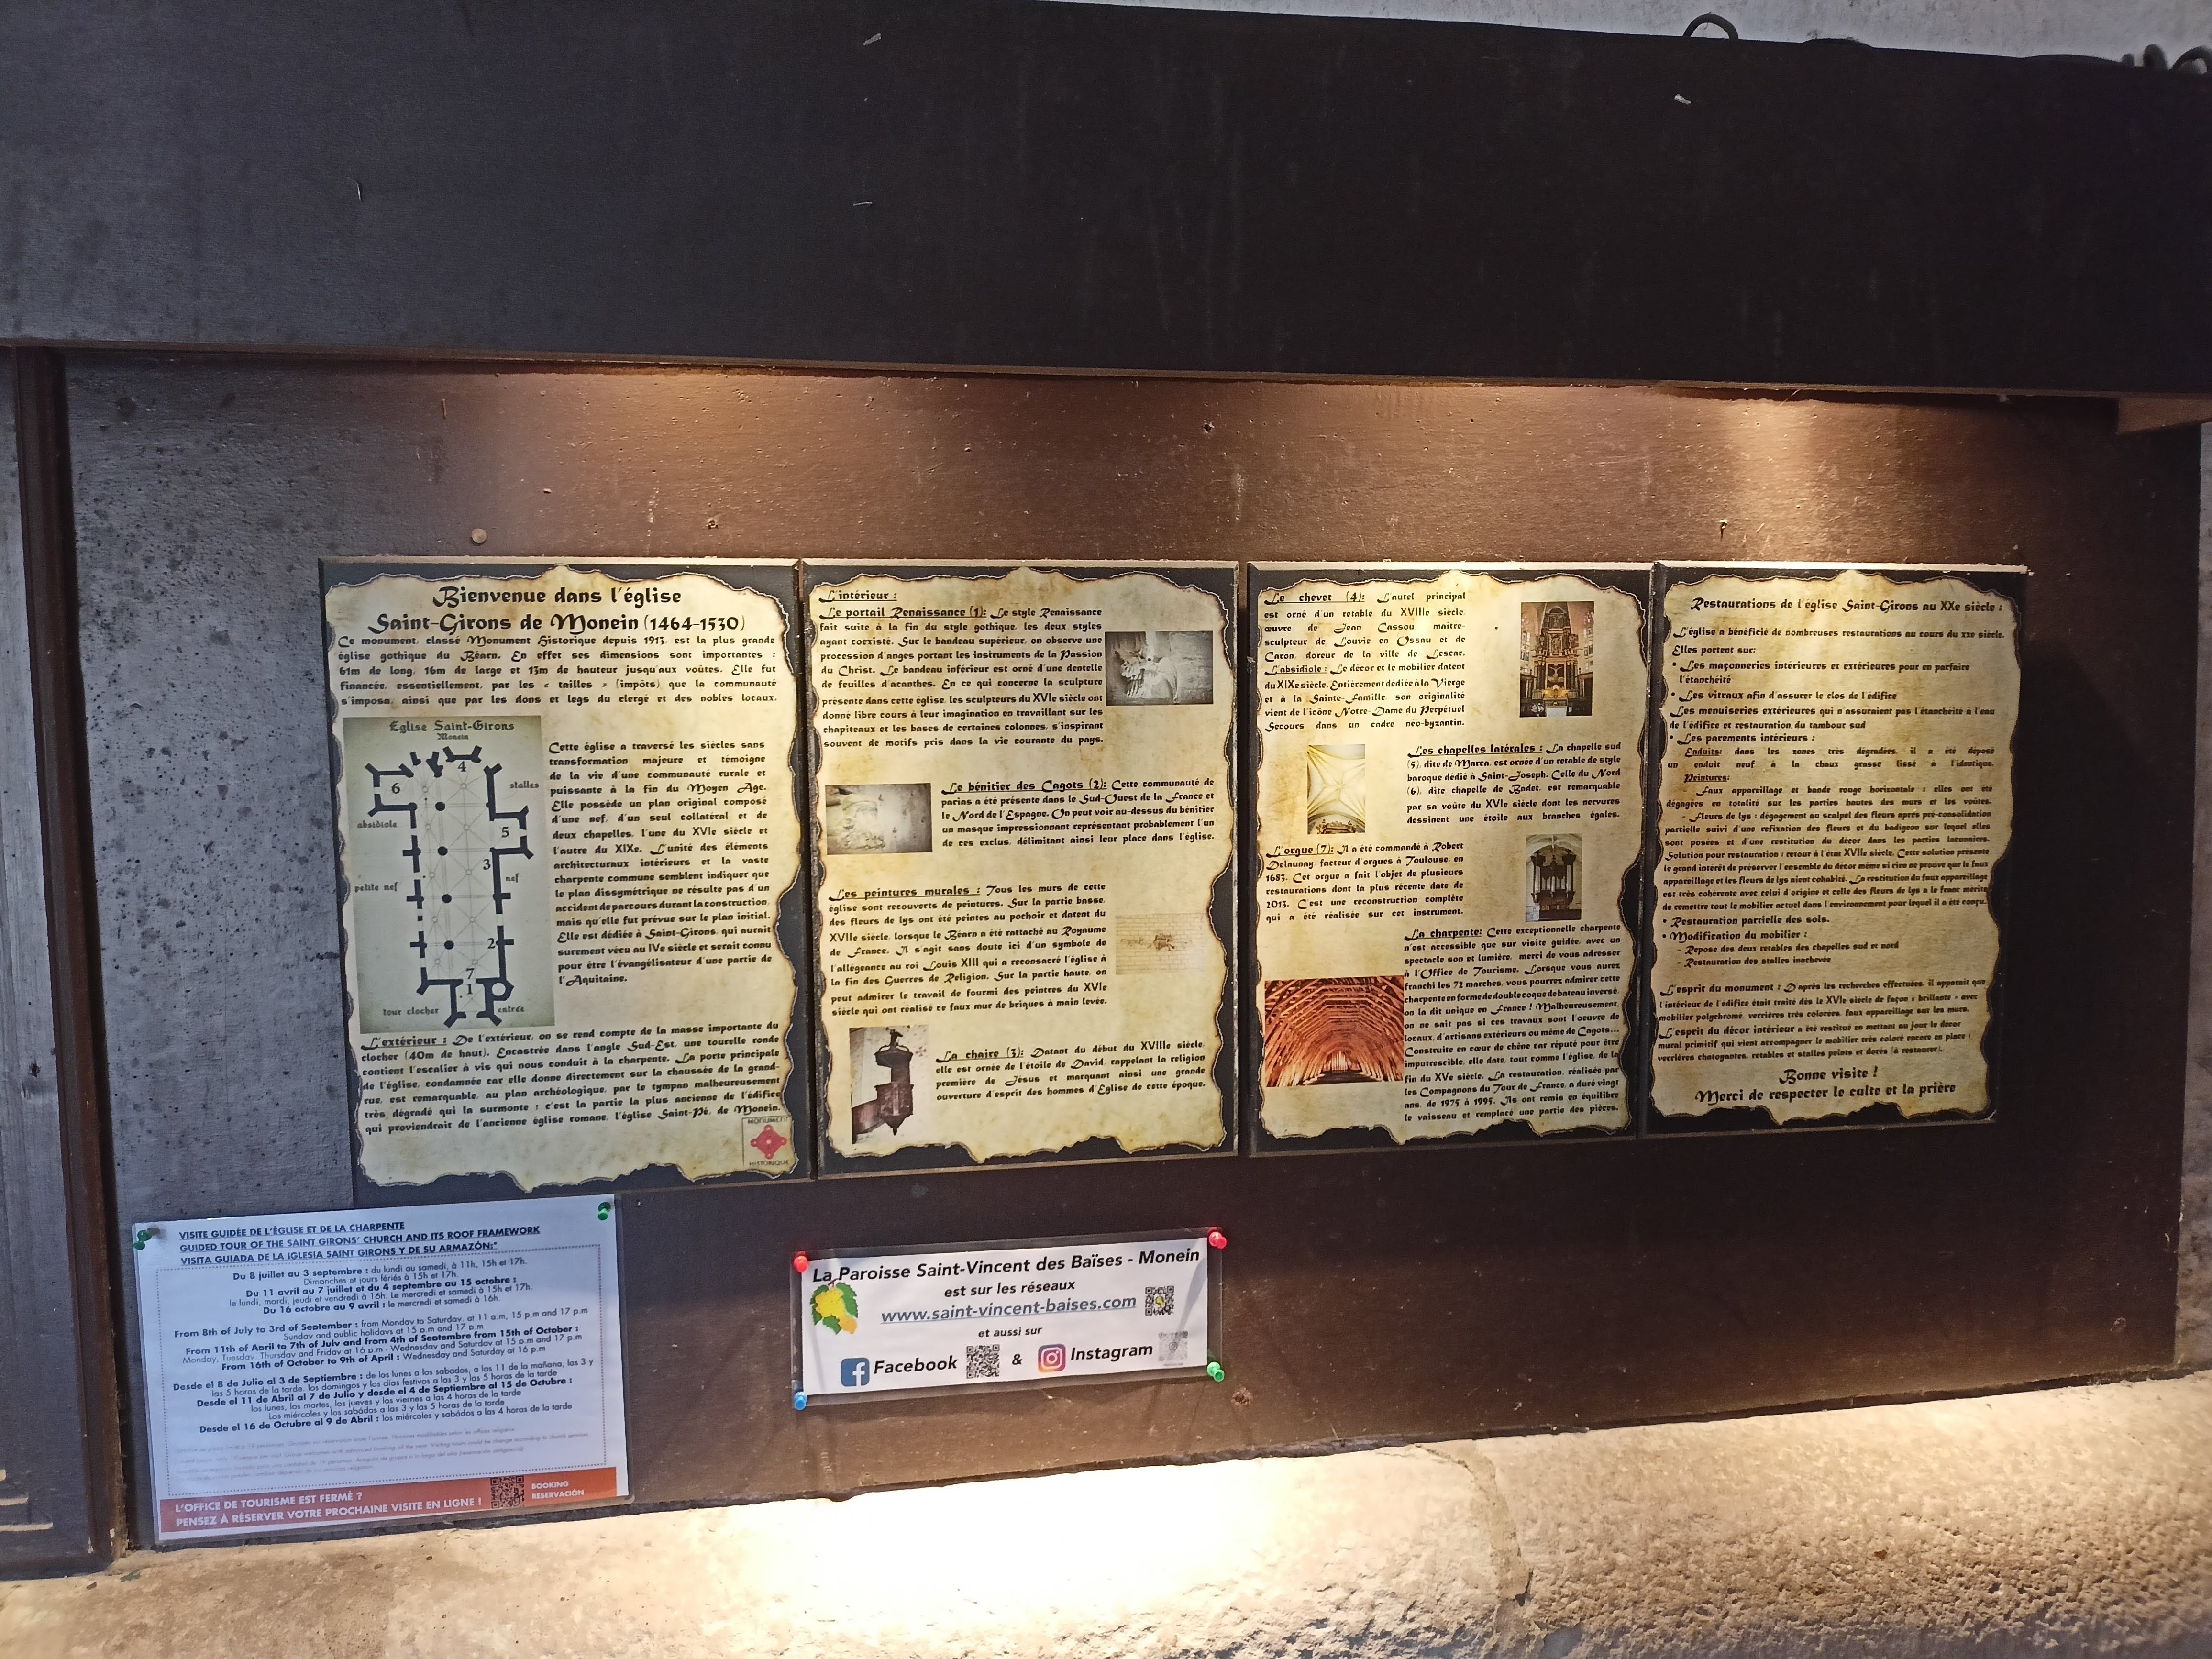 Bienvenue dans l'église
Saint-Girons de Monein (1464-1530)
Ce monument, classé Monument Historique depuis 1913, est la plus grande
église gothique du Béarn. En effet ses dimensions sont importantes :
61m de long, 16m de large et 13m de hauteur jusqu'aux voûtes. Elle fut
financée, essentiellement, par les « tailles » (impôts) que la communauté
s'imposa, ainsi que par les dons et legs du clergé et des nobles locaux.
Eglise Saint-Girons
Monein
4
stalles
6
absidiole
5
3
nef
petite nef
2
7
1
tour clocher
entrée
Cette église a traversé les siècles sans
transformation majeure et témoigne
de la vie d'une communauté rurale et
puissante à la fin du Moyen Age.
Elle possède un plan original composé
d'une nef, d'un seul collatéral et de
deux chapelles, l'une du XVIe siècle et
l'autre du XIXe. L'unité des éléments
architecturaux intérieurs et la vaste
charpente commune semblent indiquer que
le plan dissymétrique ne résulte pas d'un
accident de parcours durant la construction,
mais qu'elle fut prévue sur le plan initial.
Elle est dédiée à Saint-Girons, qui aurait
surement vécu au IVe siècle et serait connu
pour être l'évangélisateur d'une partie de
l'Aquitaine.
L'extérieur : De l'extérieur, on se rend compte de la masse importante du
clocher (40m de haut). Encastrée dans l'angle Sud-Est, une tourelle ronde
contient l'escalier à vis qui nous conduit à la charpente. La porte principale
de l'église, condamnée car elle donne directement sur la chaussée de la grand-
rue, est remarquable, au plan archéologique, par le tympan malheureusement
très dégradé qui la surmonte : c'est la partie la plus ancienne de l'édifice
qui proviendrait de l'ancienne église romane, l'église Saint-Pé, de Monein.
MONUMENT
HISTORIQUE
L'intérieur :
Le portail Renaissance (1): Le style Renaissance
fait suite à la fin du style gothique, les deux styles
ayant coexisté. Sur le bandeau supérieur, on observe une
procession d'anges portant les instruments de la Passion
du Christ. Le bandeau inférieur est orné d'une dentelle
de feuilles d'acanthes. En ce qui concerne la sculpture
présente dans cette église, les sculpteurs du XVIe siècle ont
donné libre cours à leur imagination en travaillant sur les
chapiteaux et les bases de certaines colonnes, s'inspirant
souvent de motifs pris dans la vie courante du pays.
Le bénitier des Cagots (2): Cette communauté de
parias a été présente dans le Sud-Ouest de la France et
le Nord de l'Espagne. On peut voir au-dessus du bénitier
un masque impressionnant représentant probablement l'un
de ces exclus, délimitant ainsi leur place dans l'église.
Les peintures murales : Tous les murs de cette
église sont recouverts de peintures. Sur la partie basse,
des fleurs de lys ont été peintes au pochoir et datent du
XVIIe siècle, lorsque le Béarn a été rattaché au Royaume
de France. Il s'agit sans doute ici d'un symbole de
l'allégeance au roi Louis XIII qui a reconsacré l'église à
la fin des Guerres de Religion. Sur la partie haute, on
peut admirer le travail de fourmi des peintres du XVIe
siècle qui ont réalisé ce faux mur de briques à main levée.
La chaire (3): Datant du début du XVIIIe siècle,
elle est ornée de l'étoile de David, rappelant la religion
première de Jésus et marquant ainsi une grande
ouverture d'esprit des hommes d'Eglise de cette époque.
Le chevet (4): L'autel principal
est orné d'un retable du XVIIIe siècle,
œuvre de Jean Cassou maitre-
sculpteur de Louvie en Ossau et de
Caron, doreur de la ville de Lescar.
L'absidiole : Le décor et le mobilier datent
du XIXe siècle. Entièrement dédiée à la Vierge
et à la Sainte-Famille, son originalité
vient de l'icône Notre-Dame du Perpétuel
Secours dans un cadre néo-byzantin.
Les chapelles latérales : La chapelle sud
(5), dite de Marca, est ornée d'un retable de style
baroque dédié à Saint-Joseph. Celle du Nord
(6), dite chapelle de Badet, est remarquable
par sa voûte du XVIe siècle dont les nervures
dessinent une étoile aux branches égales.
L'orgue (7): Il a été commandé à Robert
Delaunay, facteur d'orgues à Toulouse, en
1683. Cet orgue a fait l'objet de plusieurs
restaurations dont la plus récente date de
2013. C'est une reconstruction complète
qui a été réalisée sur cet instrument.
La charpente: Cette exceptionnelle charpente
n'est accessible que sur visite guidée, avec un
spectacle son et lumière, merci de vous adresser
à l'Office de Tourisme. Lorsque vous aurez
franchi les 72 marches, vous pourrez admirer cette
charpente en forme de double coque de bateau inversé,
on la dit unique en France ! Malheureusement,
on ne sait pas si ces travaux sont l'oeuvre de
locaux, d'artisans extérieurs ou même de Cagots...
Construite en cœur de chêne car réputé pour être
imputrescible, elle date, tout comme l'église, de la
fin du XVe siècle. La restauration, réalisée par
les Compagnons du Tour de France, a duré vingt
ans, de 1975 à 1995. Ils ont remis en équilibre
le vaisseau et remplacé une partie des pièces.
Restaurations de l'église Saint-Girons au XXe siècle :
L'église a bénéficié de nombreuses restaurations au cours du XXe siècle.
Elles portent sur:
• Les maçonneries intérieures et extérieures pour en parfaire
l'étanchéité
• Les vitraux afin d'assurer le clos de l'édifice
• Les menuiseries extérieures qui n'assuraient pas l'étanchéité à l'eau
de l'édifice et restauration du tambour sud
• Les parements intérieurs :
Enduits: dans les zones très dégradées, il a été déposé
un enduit neuf à la chaux grasse lissé à l'identique.
Peintures:
- Faux appareillage et bande rouge horizontale : elles ont été
dégagées en totalité sur les parties hautes des murs et les voûtes.
- Fleurs de lys : dégagement au scalpel des fleurs après pré-consolidation
partielle suivi d'une refixation des fleurs et du badigeon sur lequel elles
sont posées et d'une restitution du décor dans les parties lacunaires.
Solution pour restauration : retour à l'état XVIIe siècle. Cette solution présente
le grand intérêt de préserver l'ensemble du décor même si rien ne prouve que le faux
appareillage et les fleurs de lys aient cohabité. La restitution du faux appareillage
est très cohérente avec celui d'origine et celle des fleurs de lys a le franc mérite
de remettre tout le mobilier actuel dans l'environnement pour lequel il a été conçu.
• Restauration partielle des sols.
• Modification du mobilier :
- Repose des deux retables des chapelles sud et nord
- Restauration des stalles inachevée
L'esprit du monument : D'après les recherches effectuées, il apparait que
l'intérieur de l'édifice était traité dès le XVIe siècle de façon « brillante » avec
mobilier polychromé, verrières très colorées, faux appareillage sur les murs.
L'esprit du décor intérieur a été restitué en mettant au jour le décor
mural primitif qui vient accompagner le mobilier très coloré encore en place :
verrières chatoyantes, retables et stalles peints et dorés (à restaurer).
Bonne visite !
Merci de respecter le culte et la prière
VISITE GUIDÉE DE L'ÉGLISE ET DE LA CHARPENTE
GUIDED TOUR OF THE SAINT GIRONS' CHURCH AND ITS ROOF FRAMEWORK
VISITA GUIADA DE LA IGLESIA SAINT GIRONS Y DE SU ARMAZÓN:*
Du 8 juillet au 3 septembre : du lundi au samedi, à 11h, 15h et 17h.
Dimanches et jours fériés à 15h et 17h.
Du 11 avril au 7 juillet et du 4 septembre au 15 octobre :
le lundi, mardi, jeudi et vendredi à 16h. Le mercredi et samedi à 15h et 17h.
Du 16 octobre au 9 avril : le mercredi et samedi à 16h.
From 8th of July to 3rd of September : from Monday to Saturday, at 11 a.m, 15 p.m and 17 p.m
Sunday and public holidays at 15 p.m and 17 p.m
From 11th of April to 7th of July and from 4th of Septembre from 15th of October :
Monday, Tuesday, Thursday and Friday at 16 p.m - Wednesday and Saturday at 15 p.m and 17 p.m
From 16th of October to 9th of April : Wednesday and Saturday at 16 p.m
Desde el 8 de Julio al 3 de Septiembre : de los lunes a los sabados, a las 11 de la mañana, las 3 y
las 5 horas de la tarde, los domingos y los dias festivos a las 3 y las 5 horas de la tarde
Desde el 11 de Abril al 7 de Julio y desde el 4 de Septiembre al 15 de Octubre :
los lunes, los martes, los jueves y los viernes a las 4 horas de la tarde
Los miércoles y los sabádos a las 3 y las 5 horas de la tarde
Desde el 16 de Octubre al 9 de Abril : los miércoles y sabádos a las 4 horas de la tarde
L'OFFICE DE TOURISME EST FERMÉ ?
PENSEZ À RÉSERVER VOTRE PROCHAINE VISITE EN LIGNE !
BOOKING
RESERVACIÓN
La Paroisse Saint-Vincent des Baïses - Monein
est sur les réseaux
www.saint-vincent-baises.com
et aussi sur
Facebook & Instagram